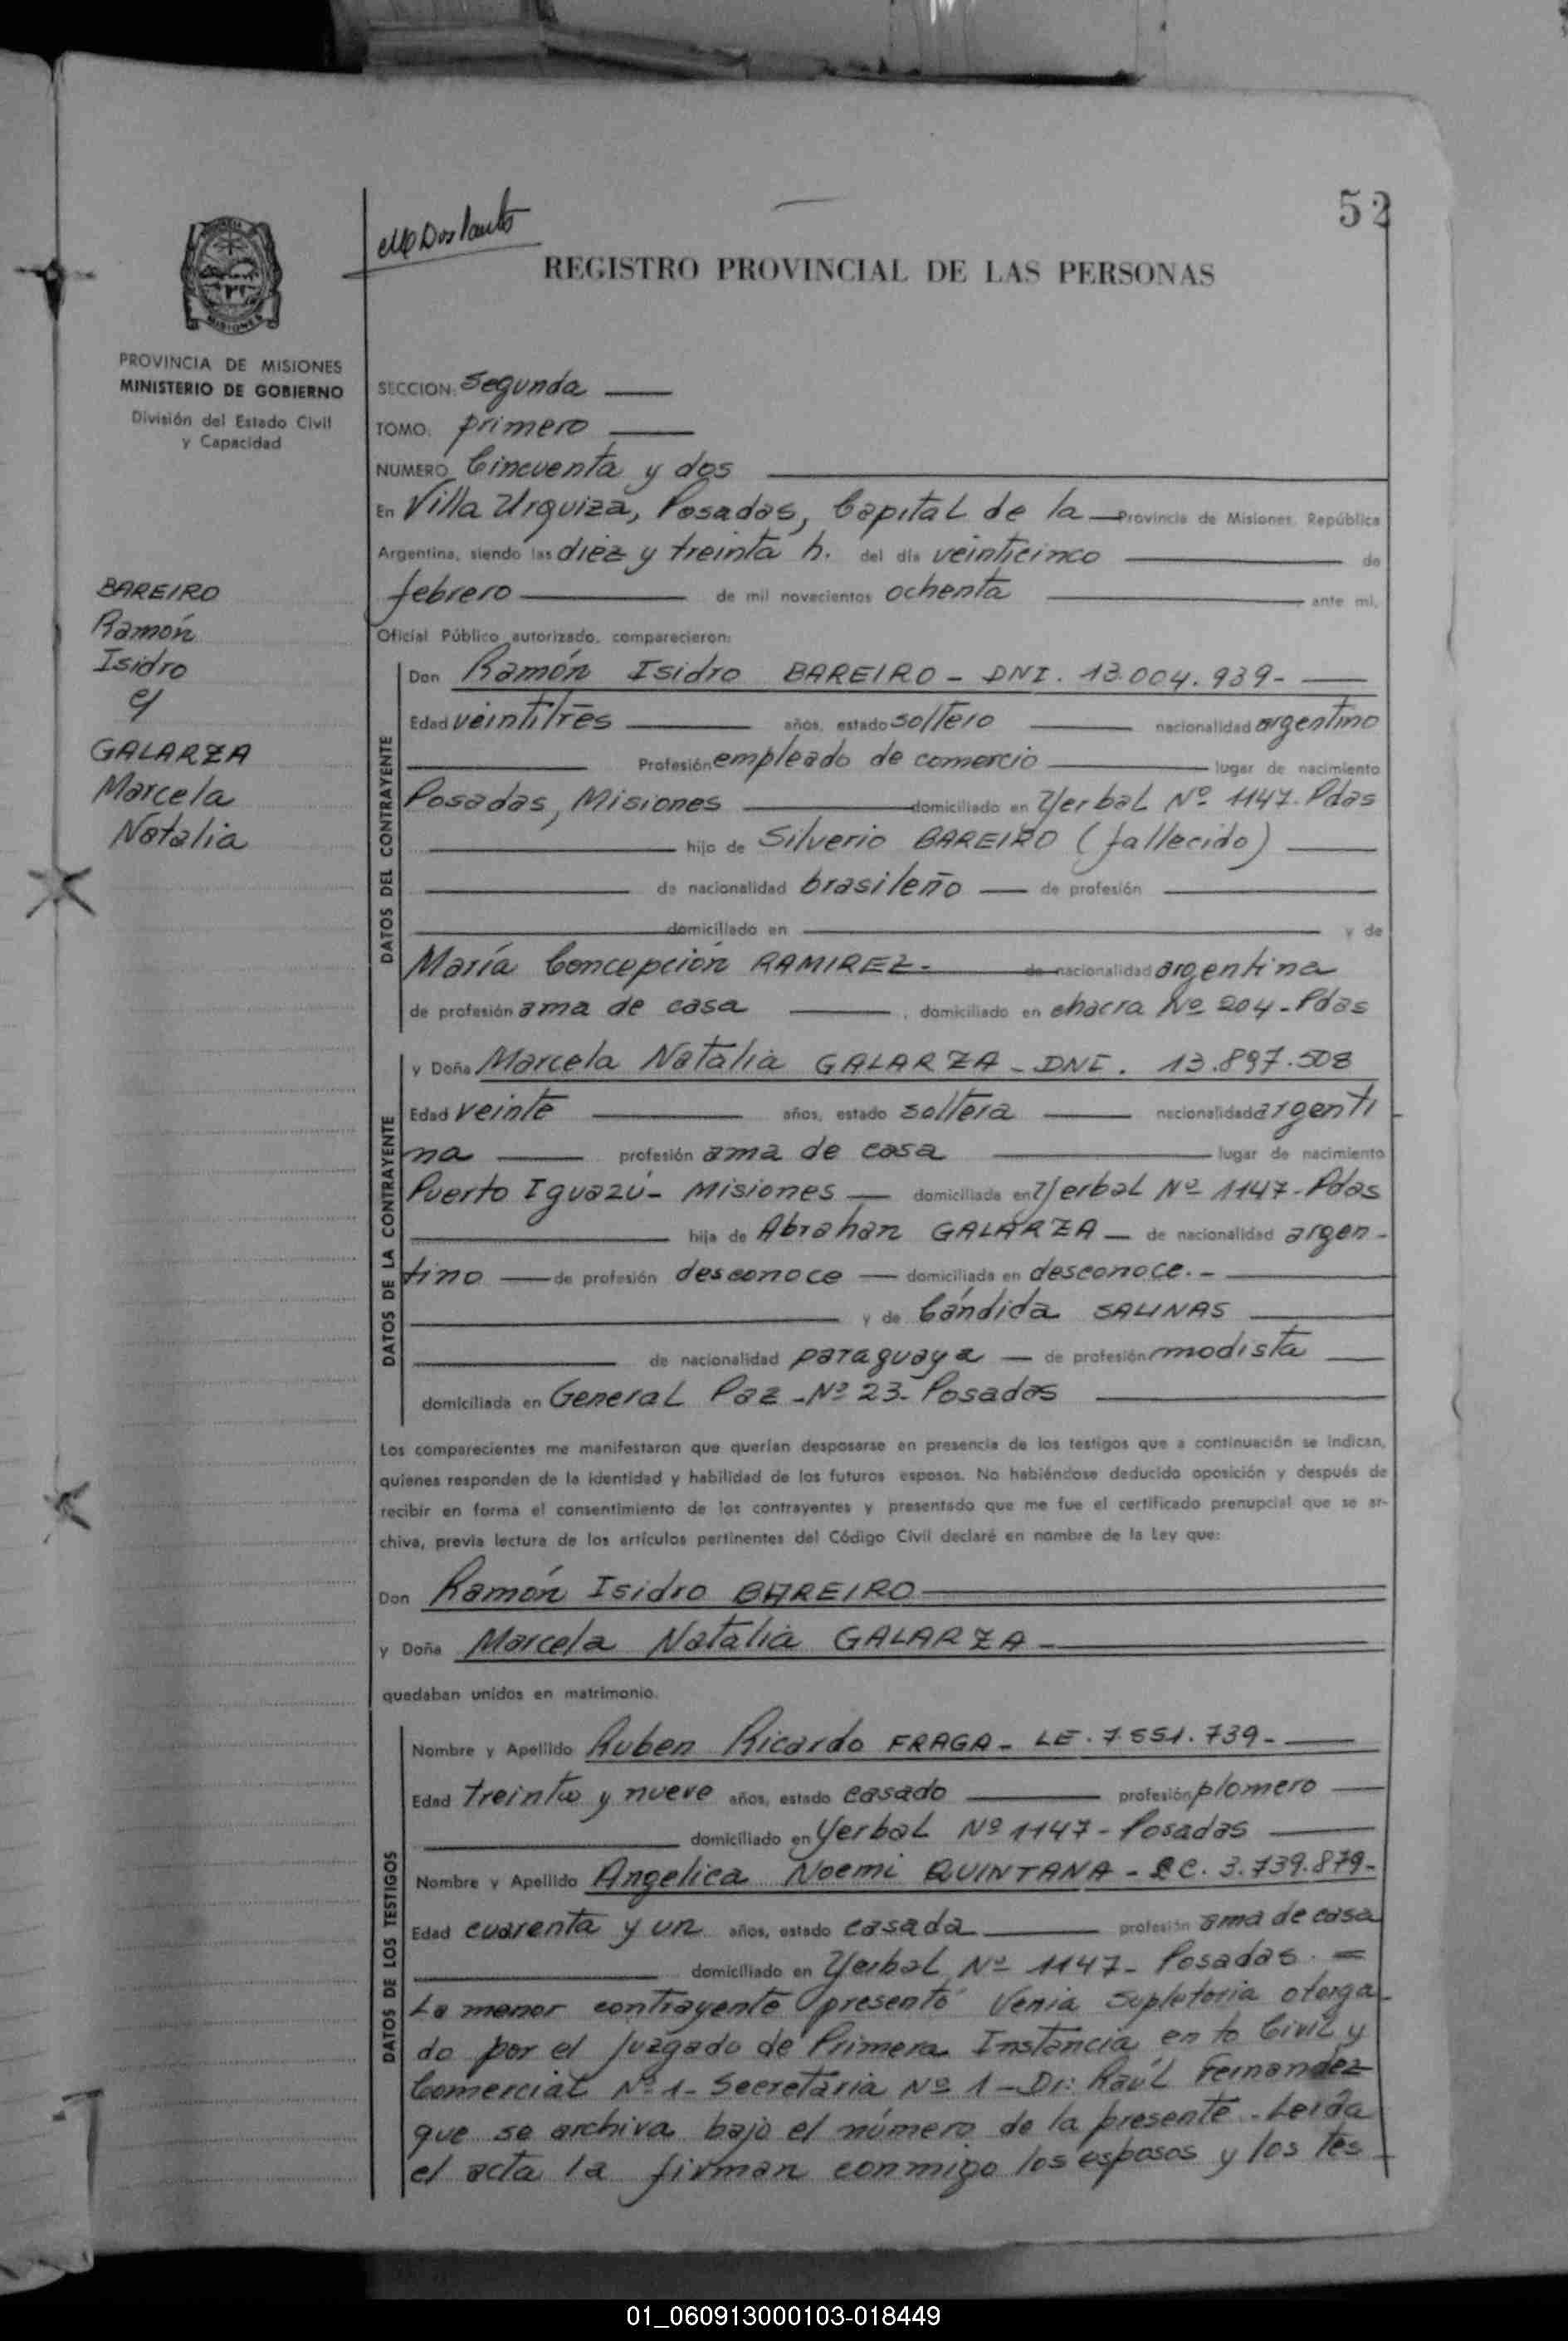 52
REGISTRO PROVINCIAL DE LAS PERSONAS
MISIONES
PROVINCIA DE MISIONES
MINISTERIO DE GOBIERNO
División del Estado Civil
y Capacidad
BAREIRO
Ramón
Isidro
c/
GALARZA
Marcela
Natalia
SECCION: Segunda
TOMO: primero
NUMERO Cincuenta y dos
En Villa Urquiza, Posadas, Capital de la Provincia de Misiones, República
Argentina, siendo las diez y treinta h. del día veinticinco de
febrero de mil novecientos ochenta ante mí,
Oficial Público autorizado, comparecieron:
DATOS DEL CONTRAYENTE
Don Ramón Isidro BAREIRO - DNI. 13.004.939-
Edad veintitrés años, estado soltero nacionalidad argentino
Profesión empleado de comercio lugar de nacimiento
Posadas, Misiones domiciliado en Yerbal Nº 1147. Pdas
hijo de Silverio BAREIRO (fallecido)
de nacionalidad brasileño de profesión
domiciliado en y de
María Concepción RAMIREZ- de nacionalidad argentina
de profesión ama de casa , domiciliado en chacra Nº 204-Pdas
DATOS DE LA CONTRAYENTE
y Doña Marcela Natalia GALARZA - DNI. 13.897.508
Edad veinte años, estado soltera nacionalidad argenti
na profesión ama de casa lugar de nacimiento
Puerto Iguazú- Misiones domiciliada en Yerbal Nº 1147-Pdas
hija de Abrahan GALARZA de nacionalidad argen-
tino de profesión desconoce domiciliada en desconoce.-
y de Cándida SALINAS
de nacionalidad paraguaya de profesión modista
domiciliada en General Paz -Nº 23- Posadas
Los comparecientes me manifestaron que querían desposarse en presencia de los testigos que a continuación se indican,
quienes responden de la identidad y habilidad de los futuros esposos. No habiéndose deducido oposición y después de
recibir en forma el consentimiento de los contrayentes y presentado que me fue el certificado prenupcial que se ar-
chiva, previa lectura de los artículos pertinentes del Código Civil declaré en nombre de la Ley que:
Don Ramón Isidro BAREIRO
y Doña Marcela Natalia GALARZA-
quedaban unidos en matrimonio.
DATOS DE LOS TESTIGOS
Nombre y Apellido Ruben Ricardo FRAGA- LE. 7.551.739-
Edad treinta y nueve años, estado casado profesión plomero
domiciliado en Yerbal Nº 1147- Posadas
Nombre y Apellido Angelica Noemi QUINTANA - LC. 3.739.879-
Edad cuarenta y un años, estado casada profesión ama de casa
domiciliado en Yerbal Nº 1147- Posadas. =
La menor contrayente presentó Venia Supletoria otorga-
do por el Juzgado de Primera Instancia en lo Civil y
Comercial Nº 1- Secretaria Nº 1-Dr: Raúl Fernandez
que se archiva bajo el número de la presente. Leida
el acta la firman conmigo los esposos y los tes-
01_060913000103-018449